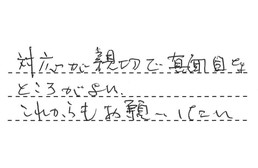 対応が親切で真面目な
ところがよい
これからもお願いしたい